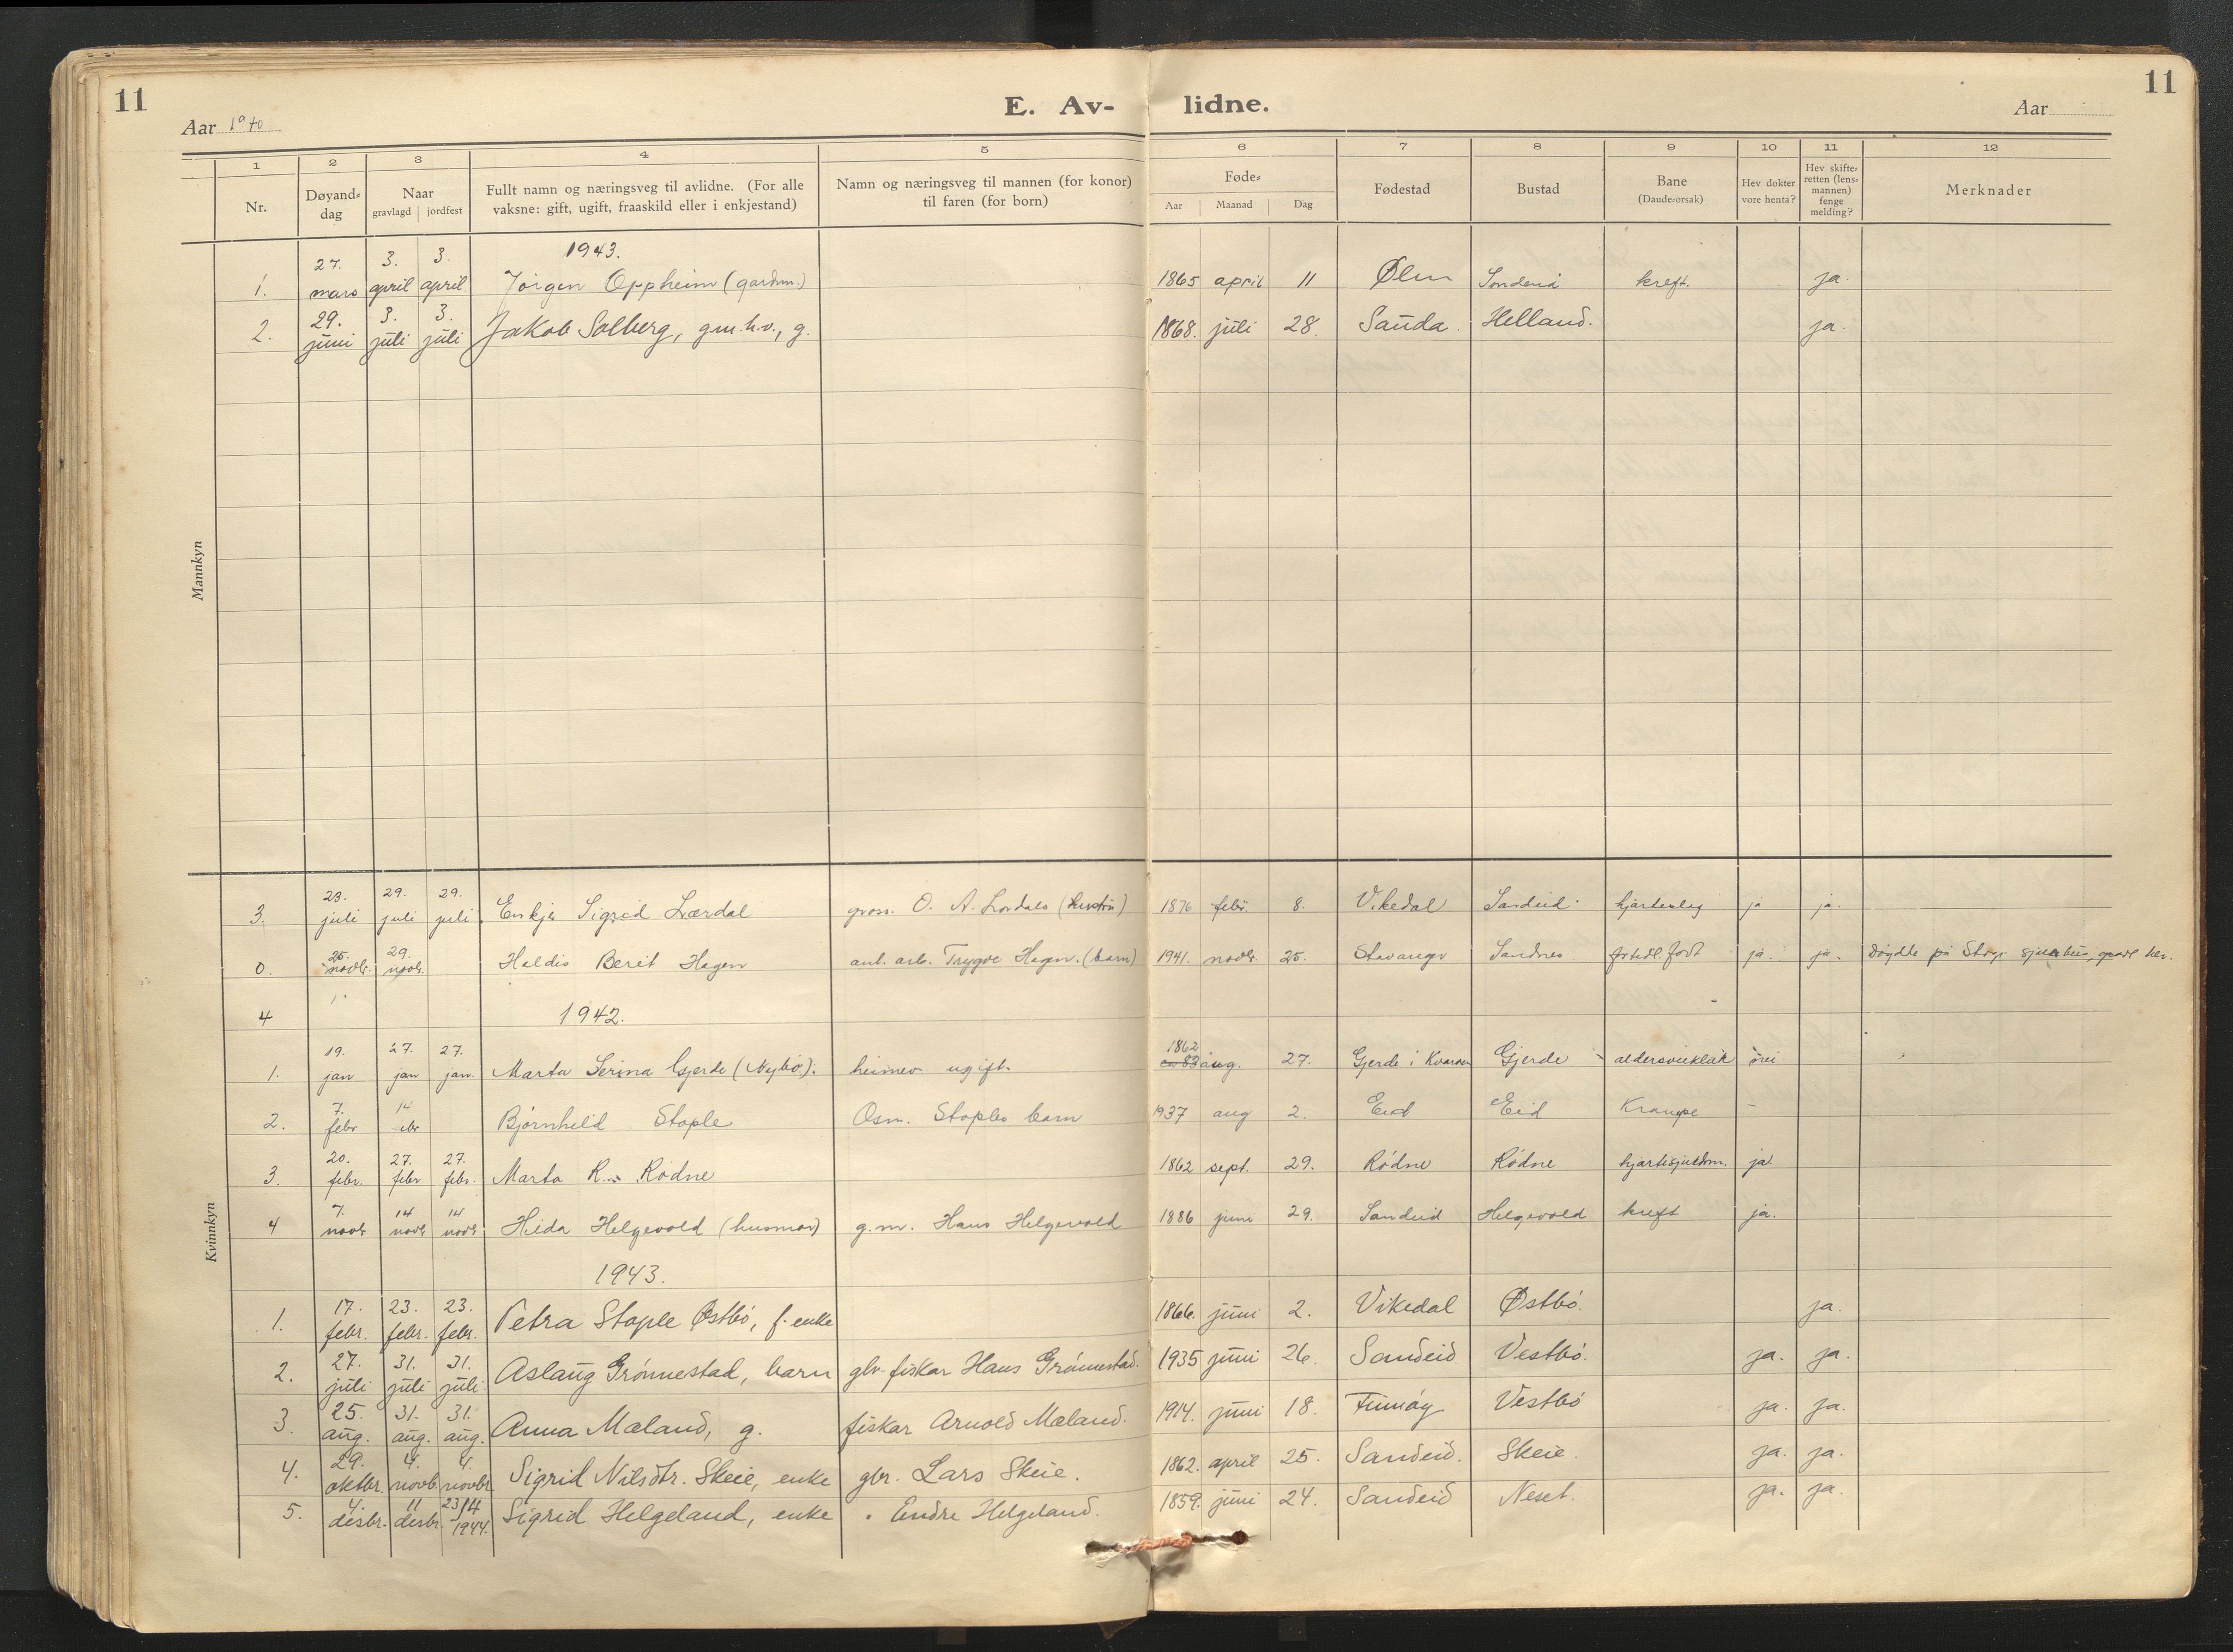 11
11
E. Av- lidne.
Aar 1940
Aar
1 2 3 4 5 6 7 8 9 10 11 12
Nr.
Døyand-
dag
Naar
gravlagd jordfest
Fullt namn og næringsveg til avlidne. (For alle
vaksne: gift, ugift, fraaskild eller i enkjestand)
Namn og næringsveg til mannen (for konor)
til faren (for born)
Føde-
Aar Maanad Dag
Fødestad
Bustad
Bane
(Daude-orsak)
Hev dokter
vore henta?
Hev skifte-
retten (lens-
mannen)
fenge
melding?
Merknader
Mannkyn
1943.
27. 3. 3.
1. mars april april Jørgen Oppheim (gardm.) 1865 april 11 Ølen Sandeid kreft. ja.
29. 3. 3.
2. juni juli juli Jakob Solberg, gm. h.v., g. 1868. juli 28. Sauda. Helland. ja.
Kvinnkyn
23. 29. 29.
3. juli juli juli Enkje Sigrid Lærdal O. A. Lærdals 1876 febr. 8. Vikedal Sandeid ja ja.
25. 29.
0. novbr. novbr. Haldis Berit Hagen anl. arb. Trygve Hagen. (barn) 1941. novbr. 25. Stavanger Sandnes født ja. ja. Døydde på Stvgr. sjukehus, gravl. her.
4 1942.
19. 27. 27. 1862
1. jan jan jan. Marta Serina Gjerde (Nybø). heimev. ugift. aug. 27. Gjerde i Gjerde nei
7. 14
2. febr Bjørnhild Stople Osm. Stoples barn 1937 aug 2. Eid Eid Krampe -
20. 27. 27.
3. febr. febr febr. Marta R. Rødne 1862 sept. 29. Rødne Rødne hjartesjukdom. ja.
7. 14 14
4 novbr novbr novbr. Hilda Helgevold (husmor) g.m. Hans Helgevold 1886 juni 29. Sandeid Helgevold kreft ja.
1943.
17. 23. 23.
1. febr. febr. febr. Petra Stople Østbø, f. enke 1866. juni 2. Vikedal Østbø. ja.
27. 31. 31.
2. juli juli juli Aslaug Grønnestad, barn fiskar Hans Grønnestad. 1935 juni 26. Sandeid Vestbø. ja. ja.
25. 31. 31.
3. aug. aug. aug. Anna Mæland, g. fiskar Arnold Mæland. 1914. juni 18. Finnøy Vestbø ja. ja.
29. 4. 4.
4. oktbr. novb. novbr Sigrid Nilsdtr. Skeie, enke gbr. Lars Skeie. 1862. april 25. Sandeid. Skeie. ja. ja.
4. 11 23/4
5. desbr. desbr. 1944. Sigrid Helgeland, enke " Endre Helgeland. 1859. juni 24. Sandeid Neset. ja. ja.